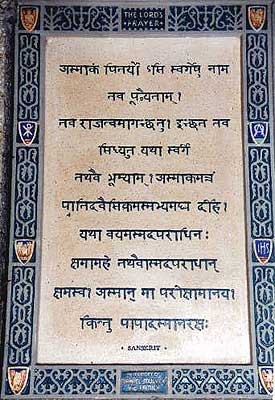 THE LORD'S
PRAYER
अस्माकं पितर्यो ऽसि स्वर्गेषु नाम
तव पूज्येताम्।
तव राजत्वमागच्छतु। इच्छत तव
सिध्यत यथा स्वर्गे
तथैव भूम्याम्। अस्माकमन्नं
दीहि।
यथा वयमस्मदपराधिनः
क्षमामहे तथैवास्मदपराधान्
क्षमस्व। अस्मान् मा परीक्षामानय।
किन्तु पापादस्मानरक्षः
SANSKRIT
IHS